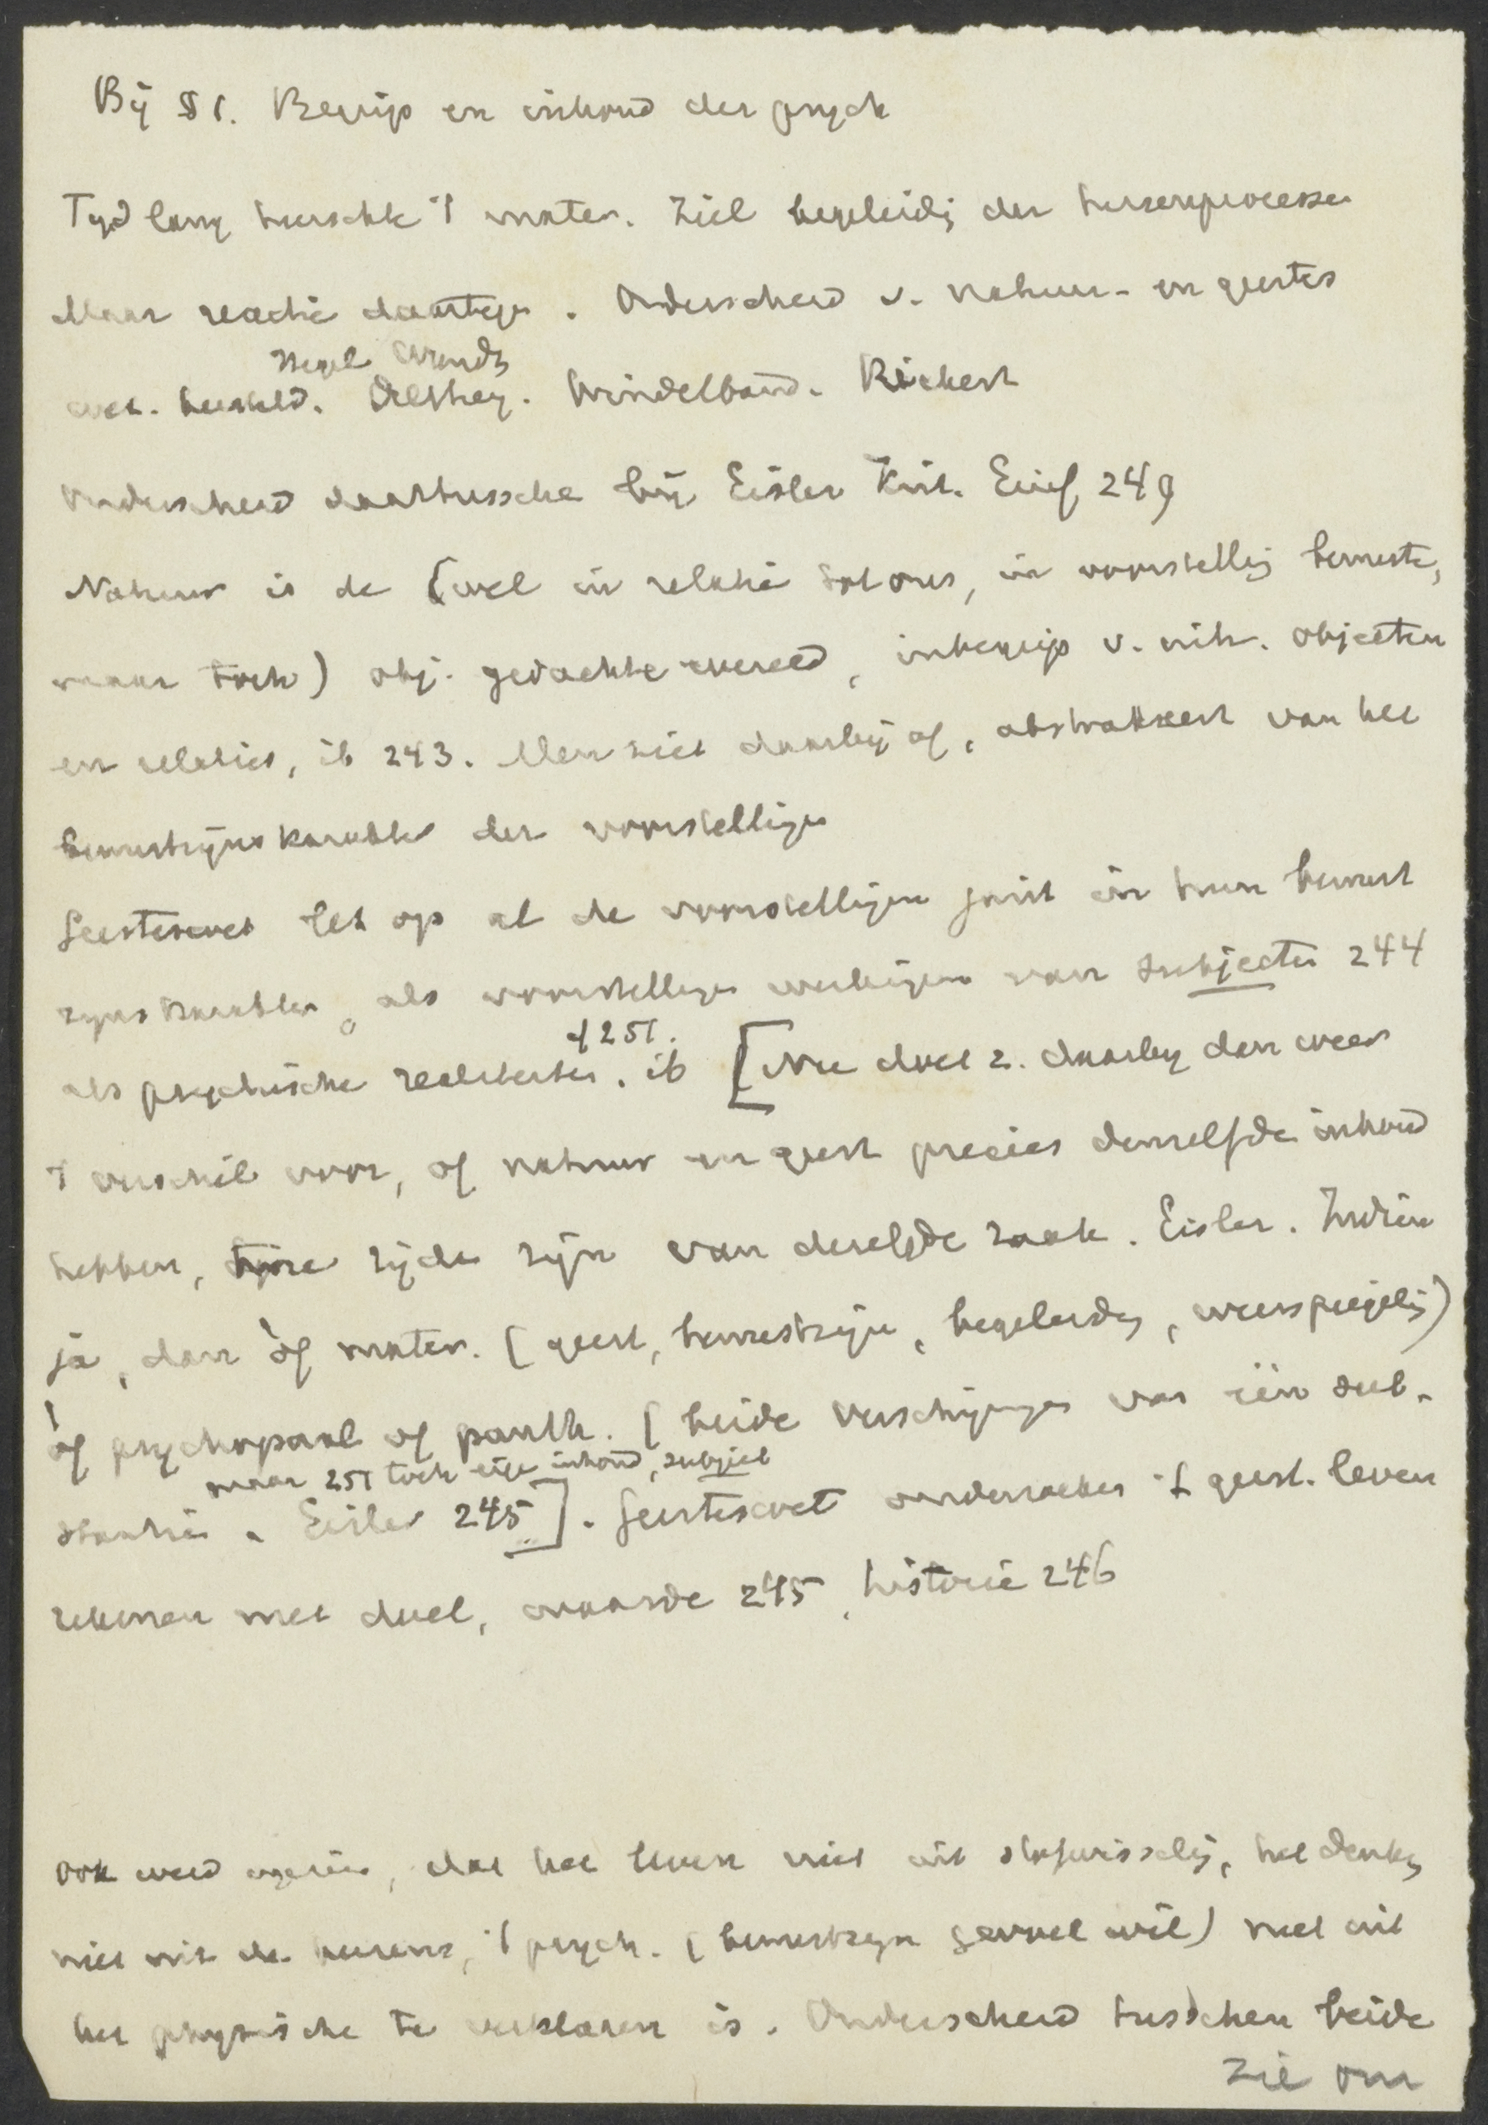 Bij § 1. Begrip en inhoud der psych
Tijd lang heerschte 't mater. Ziel begeleidg der hersenprocessen
Maar reactie daartegen. Onderscheid v. natuur- en geestes
Hegel Wundt
wet. hersteld. Dilthey. Windelband. Rickert
Onderscheid daartusschen bij Eisler Krit. Einf 249
Natuur is de (wel in relatie tot ons, in voorstellig bewuste,
maar toch) obj. gedachte wereld, inbegrip v. objecten
en relaties, ib 243. Men ziet daarbij af, abstraheert van het
bewustzijnskarakter der voorstellingen
Geesteswet let op al de voorstellingen juist in hun bewust
zijnskarakter, als voorstellingen werkingen van subjecten 244
cf 251.
als psychische realiteiten. ib [Nu doet z. daarbij dan weer
't verschil voor, of natuur en geest precies denzelfde inhoud
hebben, twee zijden zijn van dezelfde zaak. Eisler. Indien
ja, dan òf mater. (geest, bewustzijn, begeleidg, weerspiegelg)
òf psychopaal of panth. (beide verschijningen van één sub-
maar 251 toch eigen inhoud, subject
stantie. Eisler 245]. Geesteswet onderzoekt 't geest. leven
rekenen met doel, waarde 245, historie 246
Ook werd ingezien, dat het leven niet uit stofwisselg, het denkg
niet uit de hersens, 't psych. (bewustzijn gevoel wil) niet uit
het physische te verklaren is. Onderscheid tusschen beide
Zie om